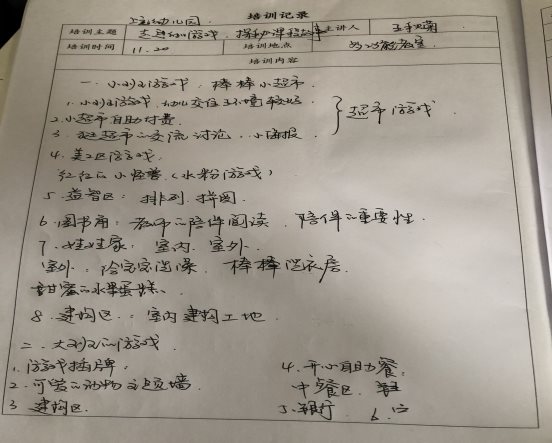 培训记录
幼儿园
培训主题 走进幼儿游戏，探秘课程故事 主讲人 王
培训时间 11.20 培训地点 多功能教室
培训内容
一、小班的游戏：棒棒小超市
1.小班游戏，幼儿交往环境较好
2.小超市自助付费
3.超市的交流讨论，小海报
超市游戏
4.美工区游戏
红红的小怪兽（水粉游戏）
5.益智区：排列、拼图
6.图书角：教师的陪伴阅读，陪伴的重要性.
7.娃娃家：室内、室外
室外：给宝宝洗澡、棒棒洗衣房
甜蜜的水果蛋糕、
8.建构区：室内建构工地
二、大班的游戏
1.游戏插牌，
2.可爱的动物主题墙
3建构区.
4.开心自助餐：
中餐区、
5.银行 6.